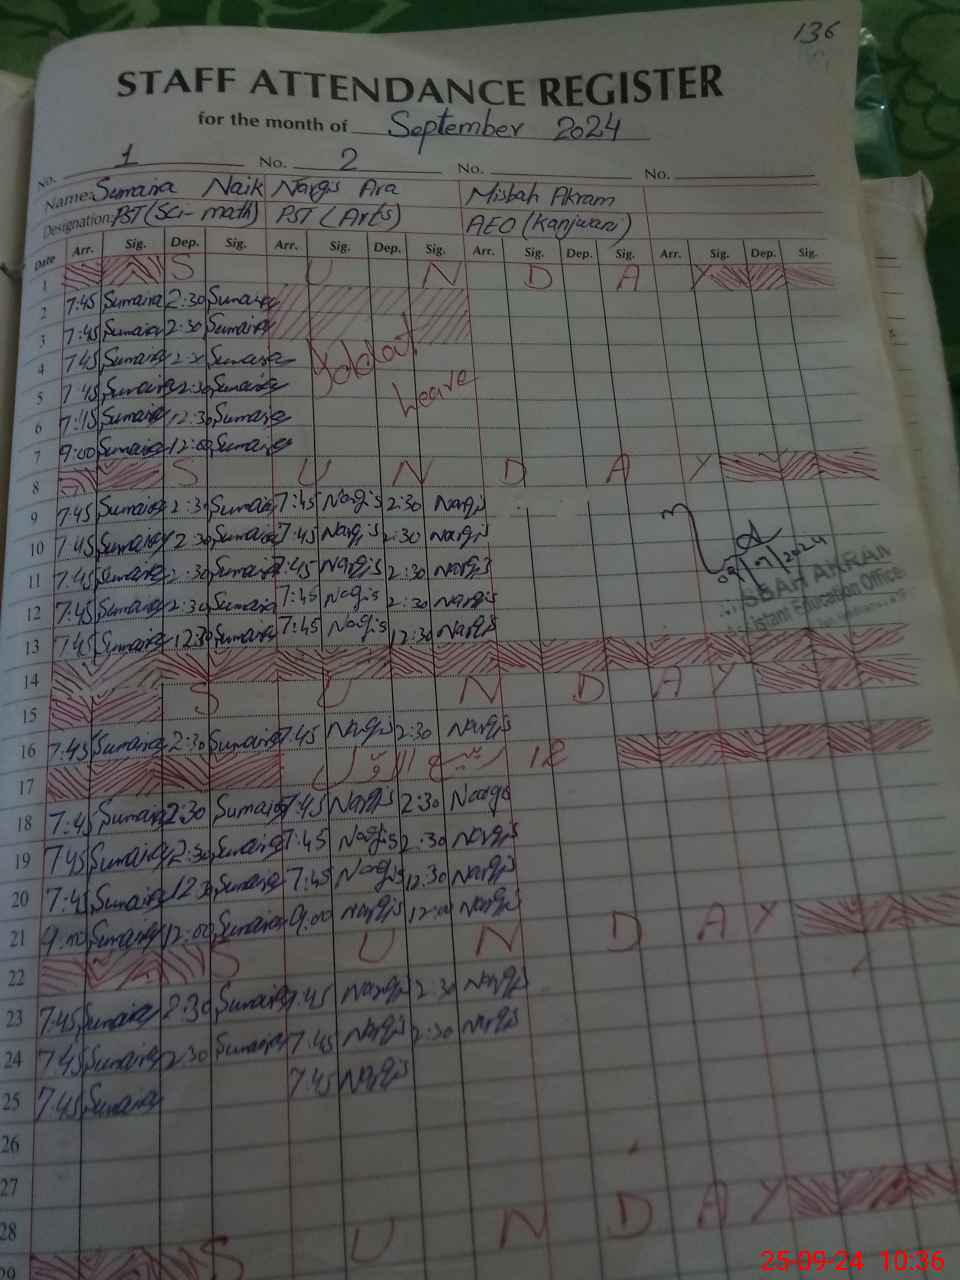 136
STAFF ATTENDANCE REGISTER
for the month of September 2024
No. 1 No. 2 No. No.
Name: Sumaira Naik Nargis Ara Misbah Akram
Designation: PST (Sci-math) PST (Arts) AEO (Kanjwani)
Date Arr. Sig. Dep. Sig. Arr. Sig. Dep. Sig. Arr. Sig. Dep. Sig. Arr. Sig. Dep. Sig.
1 S U N D A Y
2 7:45 Sumaira 2:30 Sumaira
3 7:45 Sumaira 2:30 Sumaira
4 7:45 Sumaira 2:30 Sumaira
5 7:45 Sumaira 2:30 Sumaira
Leave
6 7:45 Sumaira 12:30 Sumaira
7 9:00 Sumaira 12:00 Sumaira
8 S U N D A Y
9 7:45 Sumaira 2:30 Sumaira 7:45 Nargis 2:30 Nargis
10 7:45 Sumaira 2:30 Sumaira 7:45 Nargis 2:30 Nargis
11 7:45 Sumaira 2:30 Sumaira 7:45 Nargis 2:30 Nargis
12 7:45 Sumaira 2:30 Sumaira 7:45 Nargis 2:30 Nargis
13 7:45 Sumaira 12:30 Sumaira 7:45 Nargis 12:30 Nargis
MISBAH AKRAM
Assistant Education Officer
14
15 S U N D A Y
16 7:45 Sumaira 2:30 Sumaira 7:45 Nargis 2:30 Nargis
17 12 ربیع الاول
18 7:45 Sumaira 2:30 Sumaira 7:45 Nargis 2:30 Nargis
19 7:45 Sumaira 2:30 Sumaira 7:45 Nargis 2:30 Nargis
20 7:45 Sumaira 12:30 Sumaira 7:45 Nargis 12:30 Nargis
21 9:00 Sumaira 12:00 Sumaira 9:00 Nargis 12:00 Nargis
22 S U N D A Y
23 7:45 Sumaira 2:30 Sumaira 7:45 Nargis 2:30 Nargis
24 7:45 Sumaira 2:30 Sumaira 7:45 Nargis 2:30 Nargis
25 7:45 Sumaira 7:45 Nargis
26
27
28
29 S U N D A Y
25-09-24 10:36